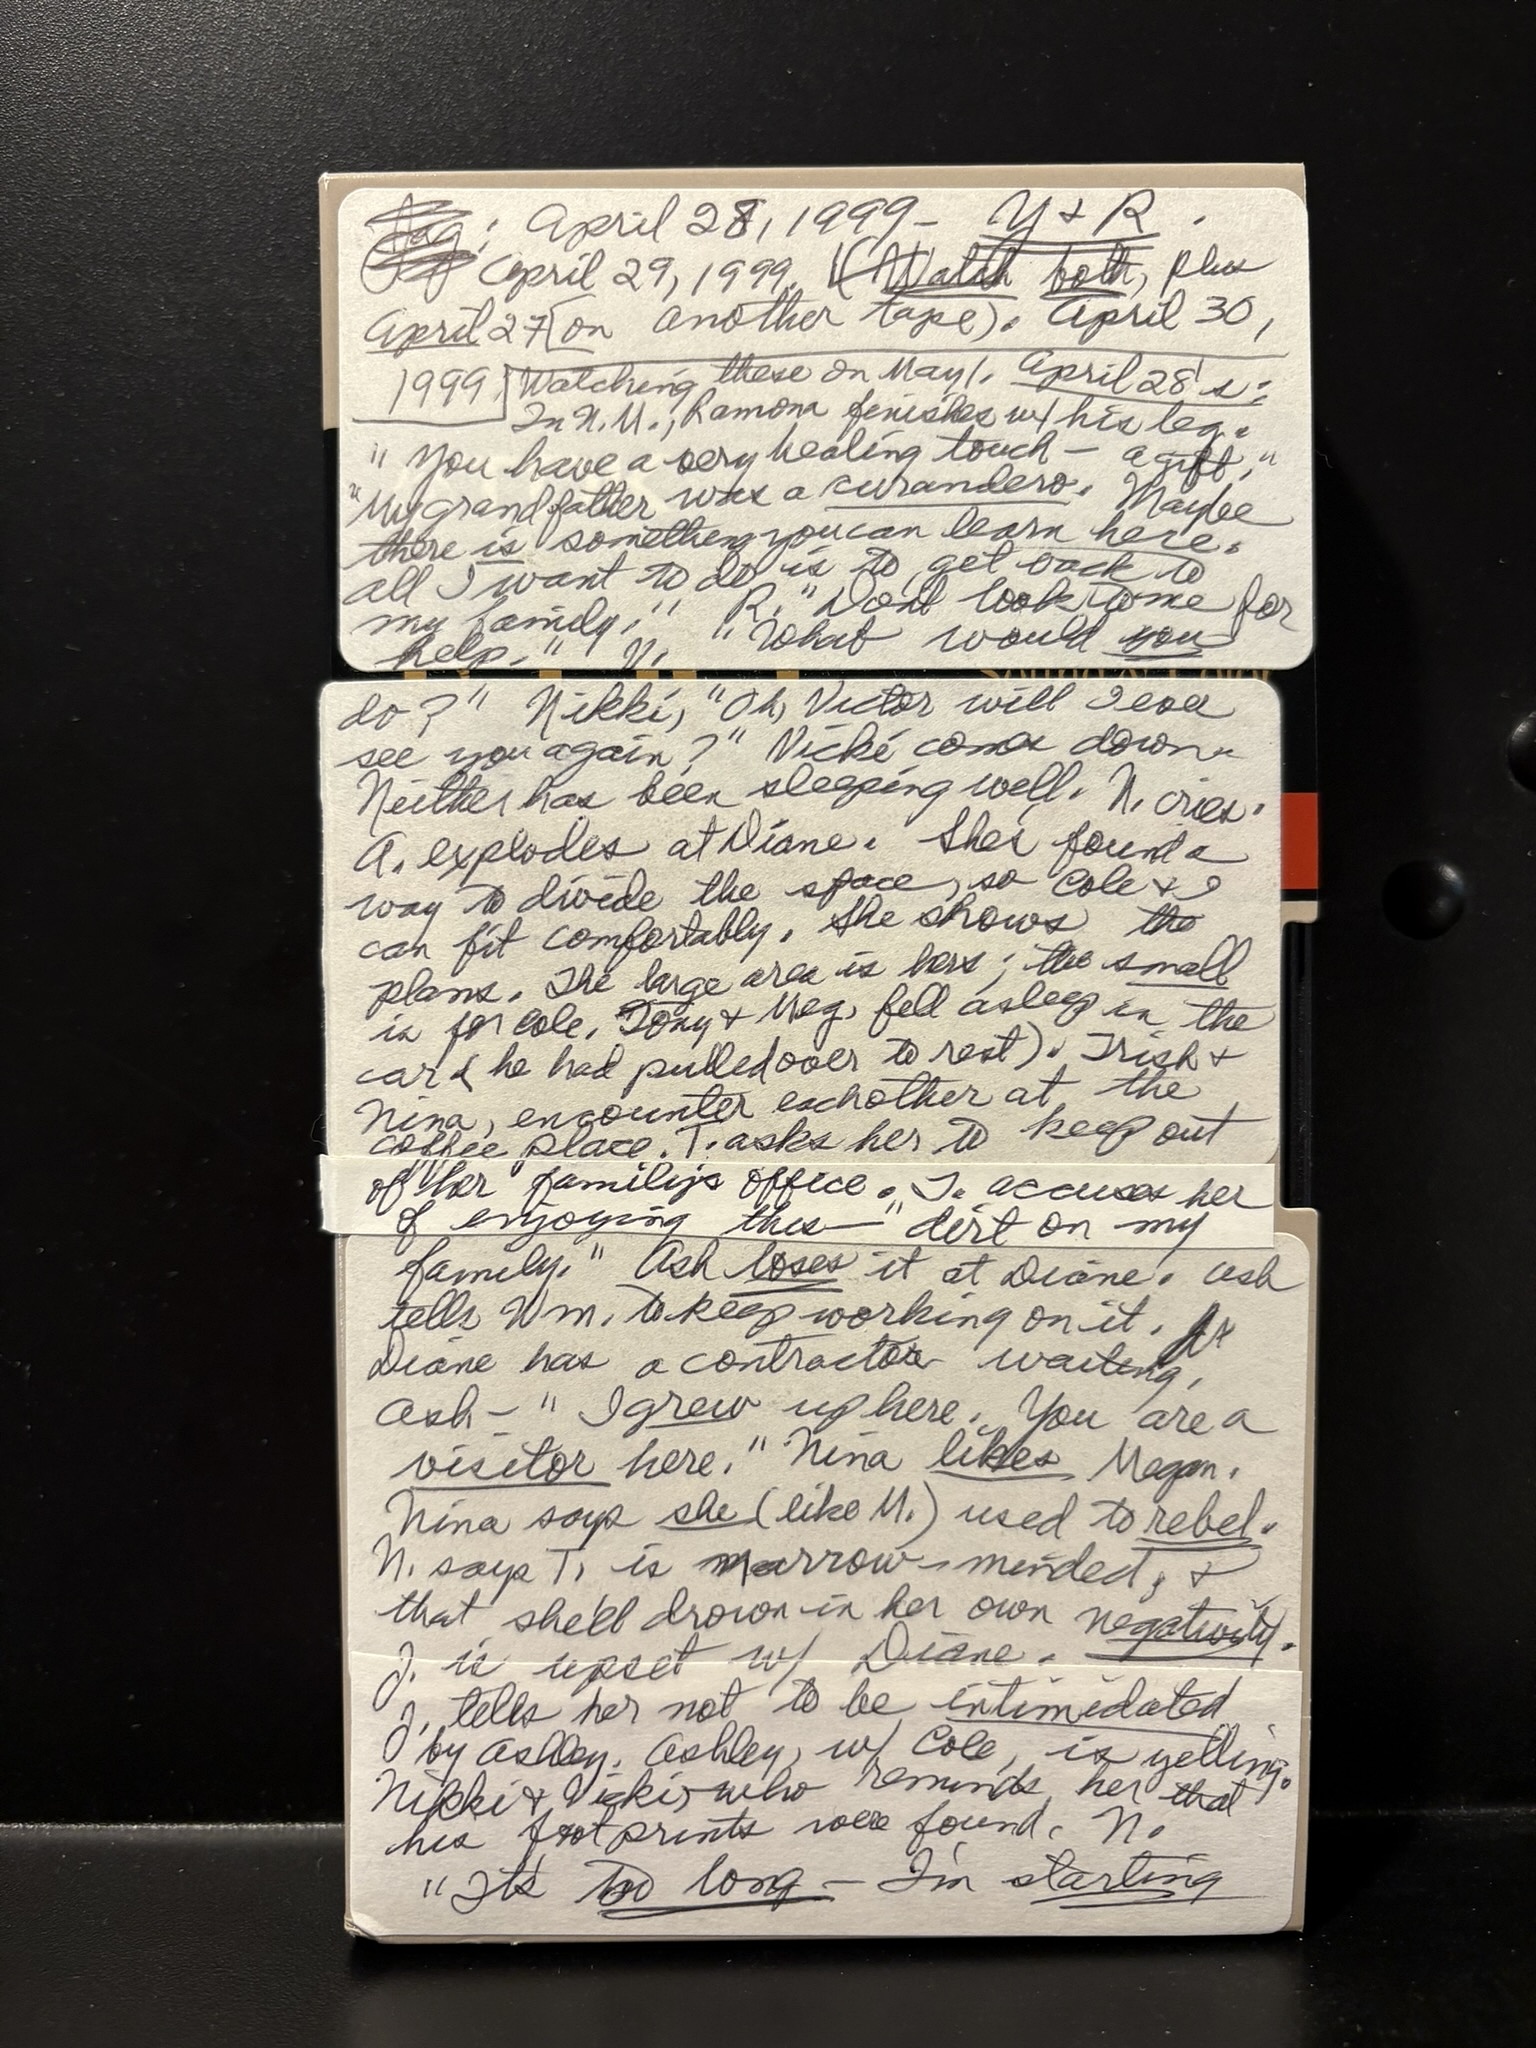 April 28, 1999- Y & R.
April 29, 1999. (Watch both, plus
April 27 [on another tape). April 30,
1999. Watching these on May 1. April 28's:
In N.M., Ramona finishes w/ his leg.
"You have a very healing touch - a gift."
"My grandfather was a curandero. Maybe
there is something you can learn here.
All I want to do is to get back to
my family." R. "Don't look to me for
help." V. "What would you
do?" Nikki, "Oh, Victor will I ever
see you again?" Vicki comes down.
Neither has been sleeping well. N. cries.
A. explodes at Diane. She's found a
way to divide the space, so Cole & I
can fit comfortably. She shows the
plans. The large area is hers; the small
is for Cole. Tony & Meg. fell asleep in the
car (he had pulled over to rest). Trish &
Nina, encounter eachother at the
coffee place. T. asks her to keep out
of "her" family's office. T. accuses her
of enjoying this - "dirt on my
family." Ash loses it at Diane. Ash
tells Wm. to keep working on it.
Diane has a contractor waiting.
Ash - "I grew up here. You are a
visitor here." Nina likes Megan.
Nina says she (like M.) used to rebel.
N. says T. is narrow-minded, &
that she'll drown in her own negativity.
J. is upset w/ Diane.
J. tells her not to be intimidated
by Ashley. Ashley, w/ Cole, is yelling.
Nikki & Vicki, who reminds her that
his footprints were found. N.
"It's too long - I'm starting